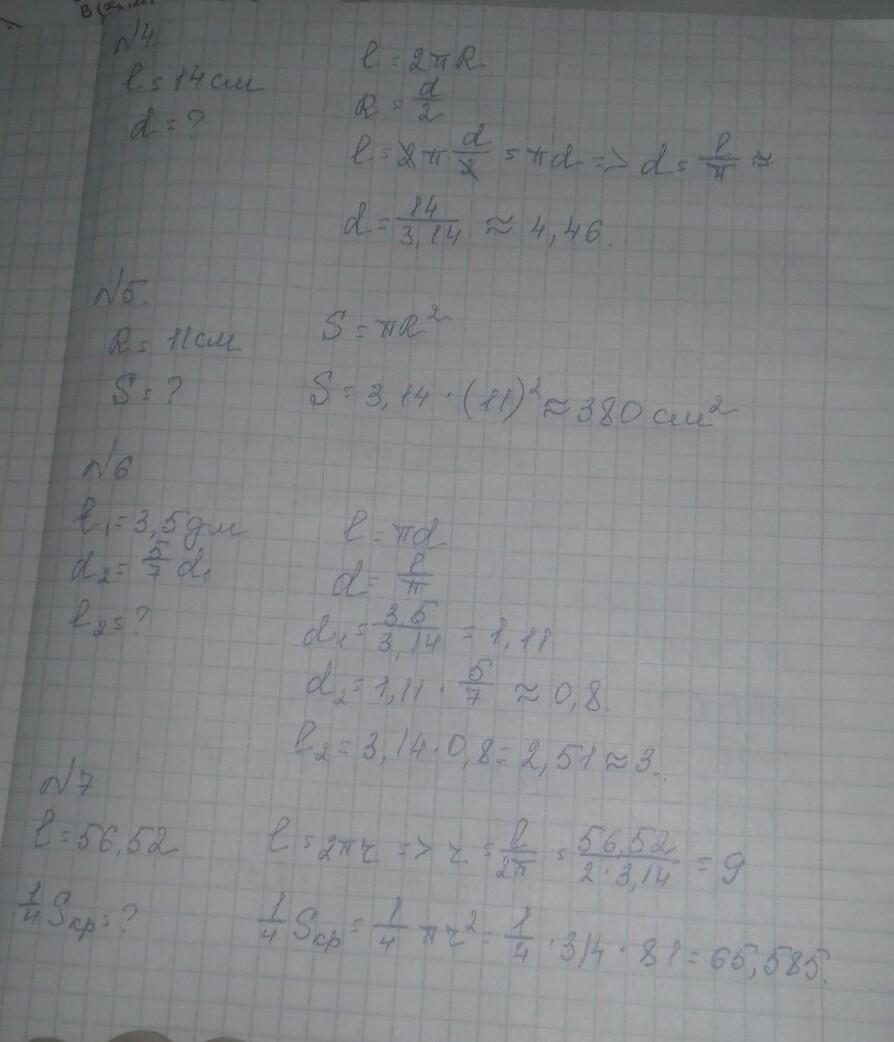 №4
l = 14 см
d = ?
l = 2πR
R = d/2
l = 2π d/2 = πd => d = l/π ≈
d = 14/3,14 ≈ 4,46.
№5.
R = 11 см
S = ?
S = πR²
S = 3,14 · (11)² ≈ 380 см²
№6
l₁ = 3,5 дм
d₂ = 5/7 d₁
l₂ = ?
l = πd
d = l/π
d₁ = 3,5/3,14 = 1,11
d₂ = 1,11 · 5/7 ≈ 0,8.
l₂ = 3,14 · 0,8 = 2,51 ≈ 3.
№7
l = 56,52
1/4 Sкр = ?
l = 2πr => r = l/2π = 56,52/2·3,14 = 9
1/4 Sкр = 1/4 πr² = 1/4 · 3,14 · 81 = 65,585.